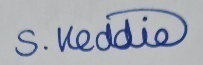 S. Keddie